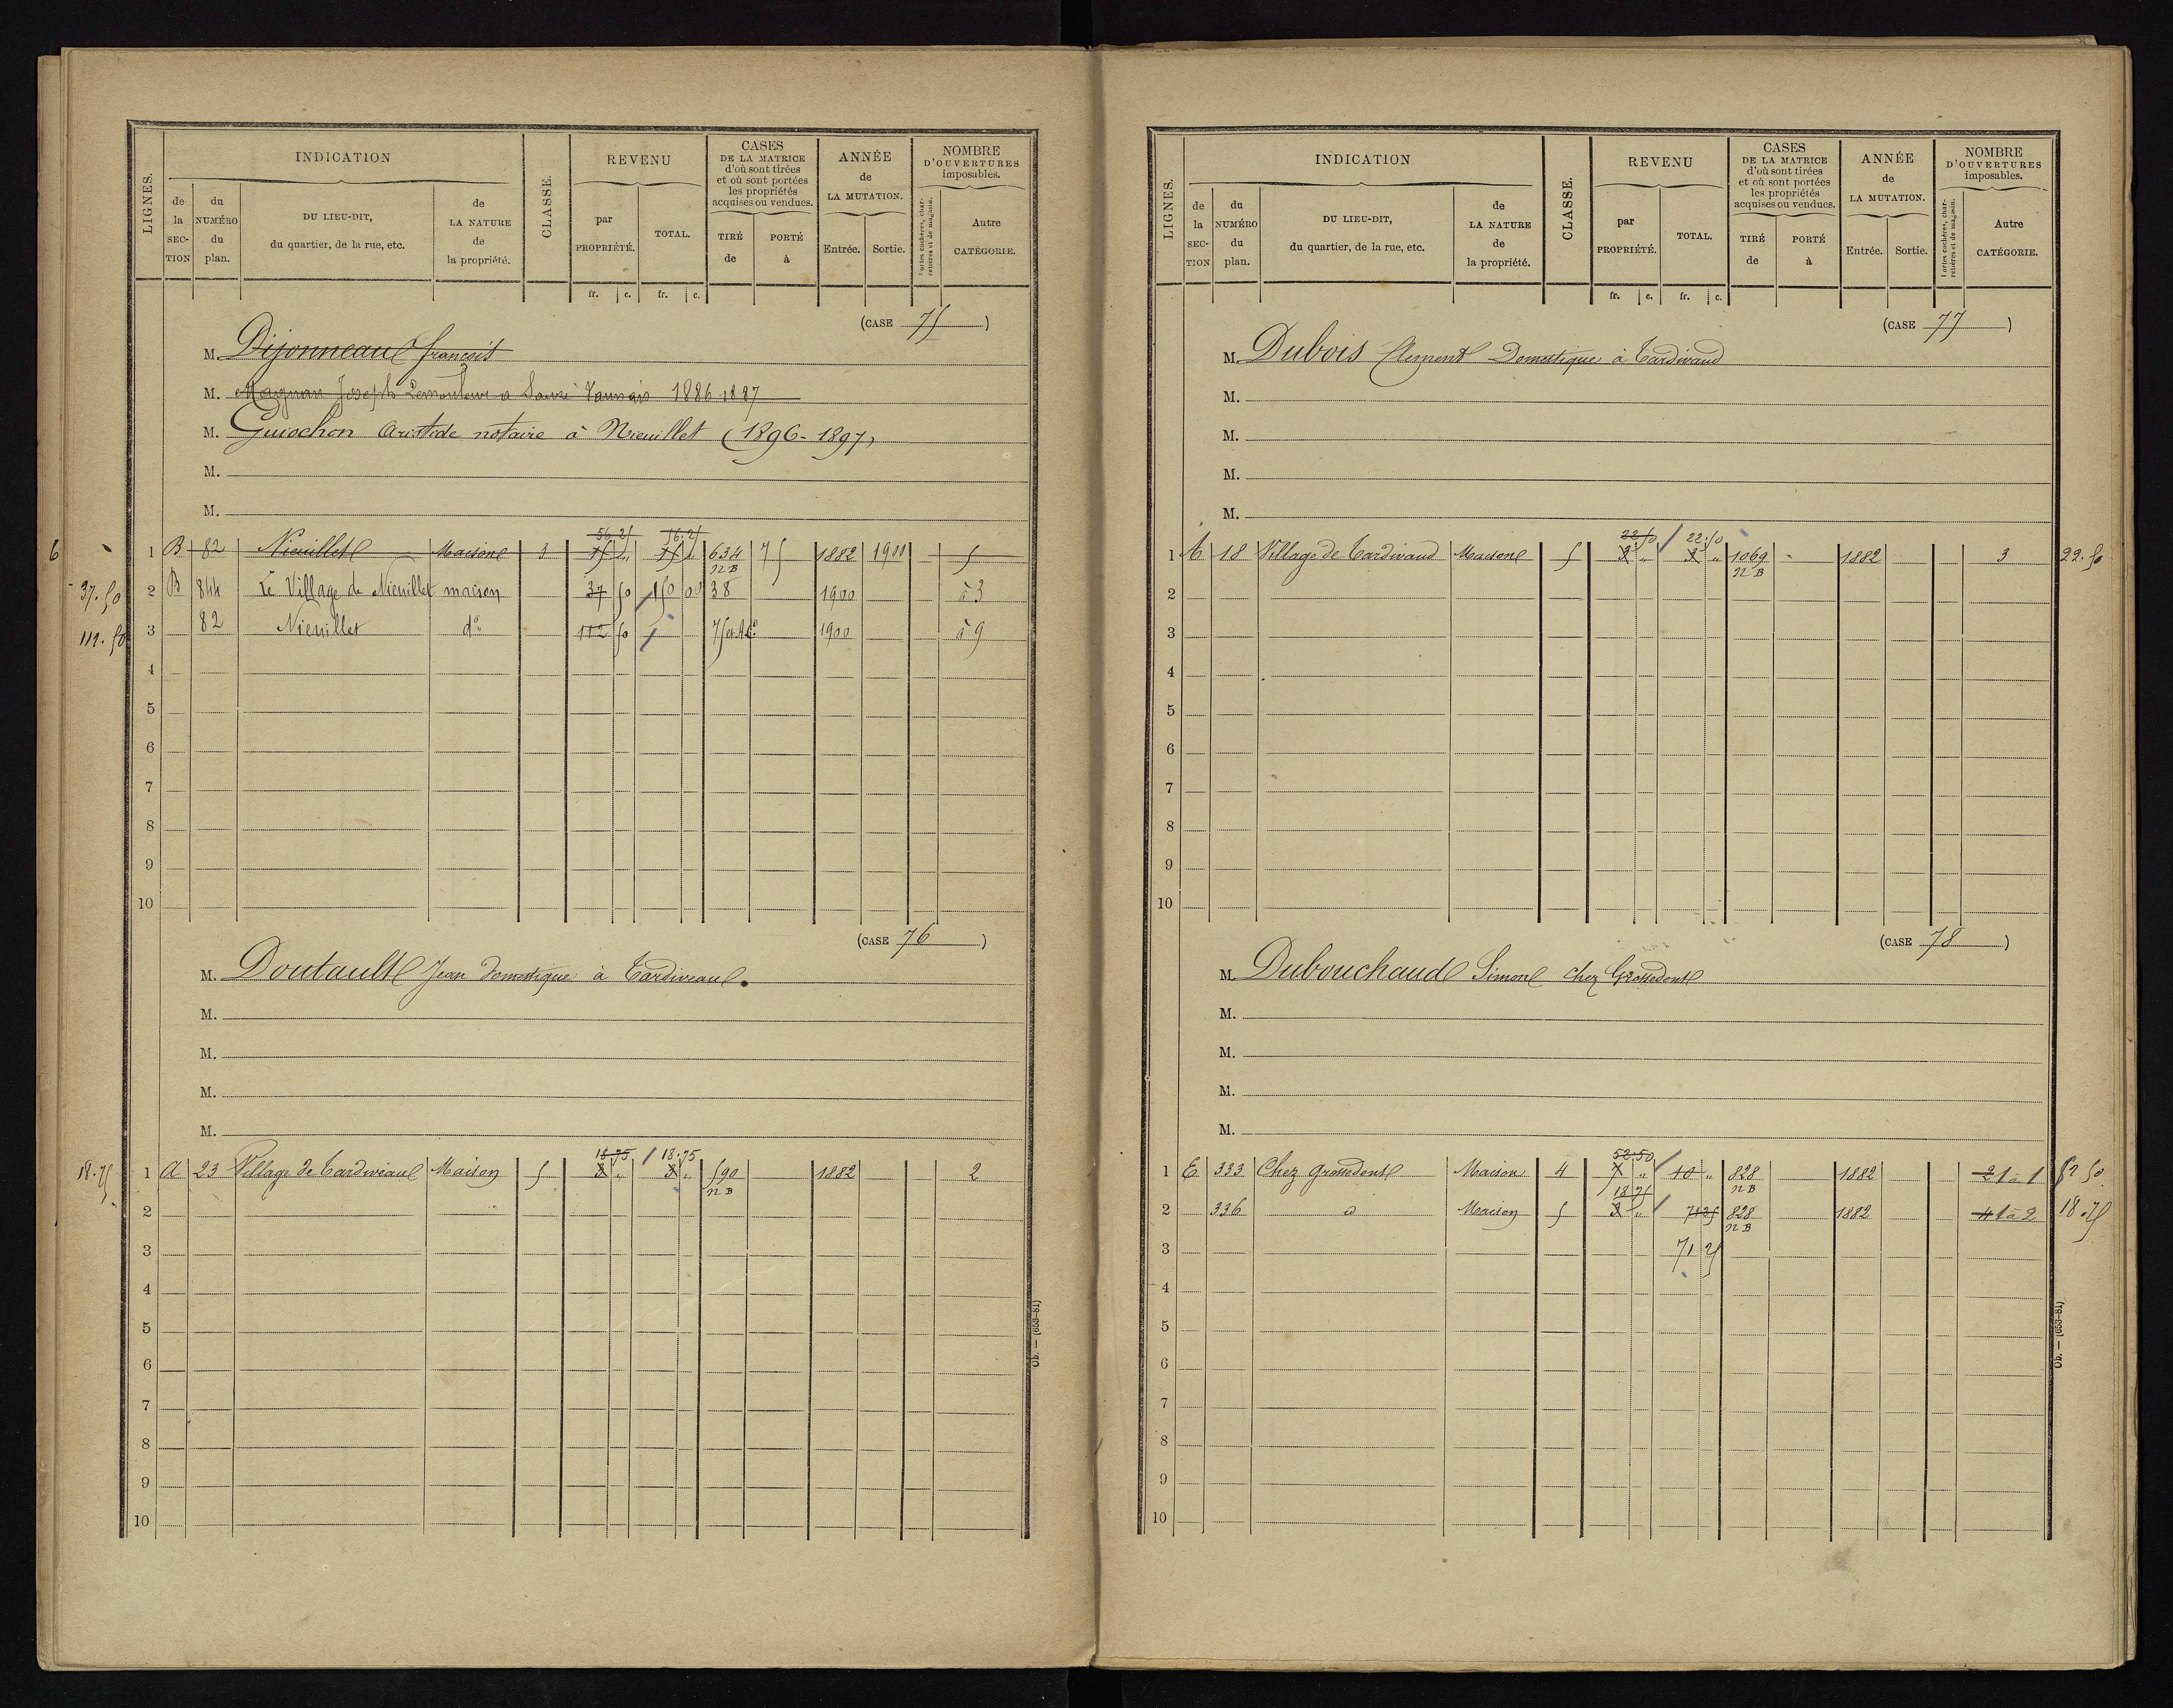 LIGNES.
INDICATION
de la SECTION
du NUMÉRO du plan.
DU LIEU-DIT, du quartier, de la rue, etc.
de LA NATURE de la propriété.
CLASSE.
REVENU
par PROPRIÉTÉ.
TOTAL.
fr. c. fr. c.
CASES DE LA MATRICE d'où sont tirées et où sont portées les propriétés acquises ou vendues.
TIRÉ de
PORTÉ à
ANNÉE de LA MUTATION.
Entrée. Sortie.
NOMBRE D'OUVERTURES imposables.
Portes cochères, charretières et de magasin.
Autre CATÉGORIE.
(CASE 75)
M. Dijonneau françois
M. Magnan Joseph à Sauzé Vaussais 1886-1887
M. Guiochon Aristide notaire à Nieuillet (1896-1897)
M.
M.
56.25 56.25
6 1 B 82 Nieuillet Maison 3 75 „ 75 „ 634 75 1882 1900 5
N B
37.50 2 B 844 Le Village de Nieuillet maison 37 50 150 00 38 1900 à 3
111.50 3 82 Nieuillet do 112 50 75 et A.C. 1900 à 9
4
5
6
7
8
9
10
(CASE 76)
M. Doutault Jean domestique à Tardiveau.
M.
M.
M.
M.
18.75 18.75
18.75 1 A 23 Village de Tardiveau Maison 5 3 „ 3 „ 590 1882 2
N B
2
3
4
5
6
7
8
9
10
Ob. — (653-81)
LIGNES.
INDICATION
de la SECTION
du NUMÉRO du plan.
DU LIEU-DIT, du quartier, de la rue, etc.
de LA NATURE de la propriété.
CLASSE.
REVENU
par PROPRIÉTÉ.
TOTAL.
fr. c. fr. c.
CASES DE LA MATRICE d'où sont tirées et où sont portées les propriétés acquises ou vendues.
TIRÉ de
PORTÉ à
ANNÉE de LA MUTATION.
Entrée. Sortie.
NOMBRE D'OUVERTURES imposables.
Portes cochères, charretières et de magasin.
Autre CATÉGORIE.
(CASE 77)
M. Dubois Clement Domestique à Tardivaud
M.
M.
M.
M.
22.50 22.50
1 A 18 Village de Tardivaud Maison 5 3 „ 3 „ 1069 1882 3 22.50
N B
2
3
4
5
6
7
8
9
10
(CASE 78)
M. Dubouchaud Simon chez Grossedent
M.
M.
M.
M.
52.50
1 E 333 Chez Grossedent Maison 4 7 „ 10 „ 828 1882 2 1 à 1 52 50
18 75 N B
2 336 d Maison 5 3 „ 71 25 828 1882 4 1 à 2 18.75
N B
3 71 25
4
5
6
7
8
9
10
Ob. — (653-81)